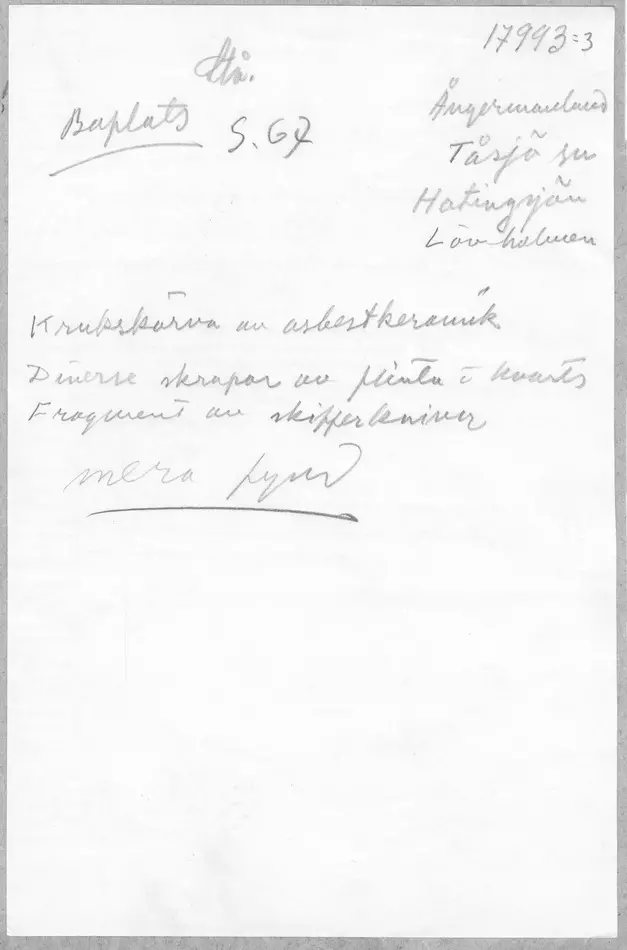 17993:3
Stå.
Boplats S. 67
Ångermanland
Tåsjö sn
Hotingsjön
Lövholmen
Krukskärva av asbestkeramik
Diverse skrapor av flinta o kvarts
Fragment av skifferkniver
mera fynd